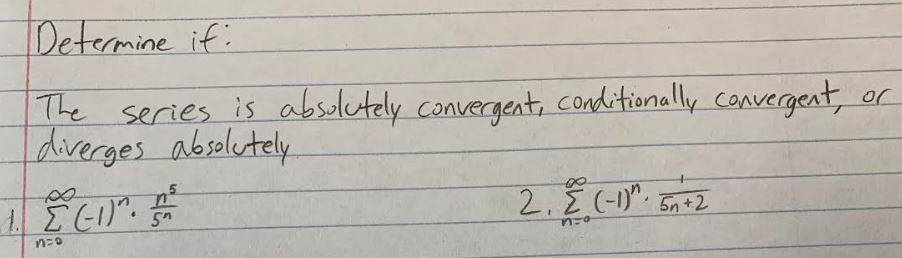 Determine if:
The series is absolutely convergent, conditionally convergent, or
diverges absolutely
1. ∞ Σ n=0 (-1)ⁿ · n⁵/5ⁿ 2. ∞ Σ n=0 (-1)ⁿ · 1/5n+2